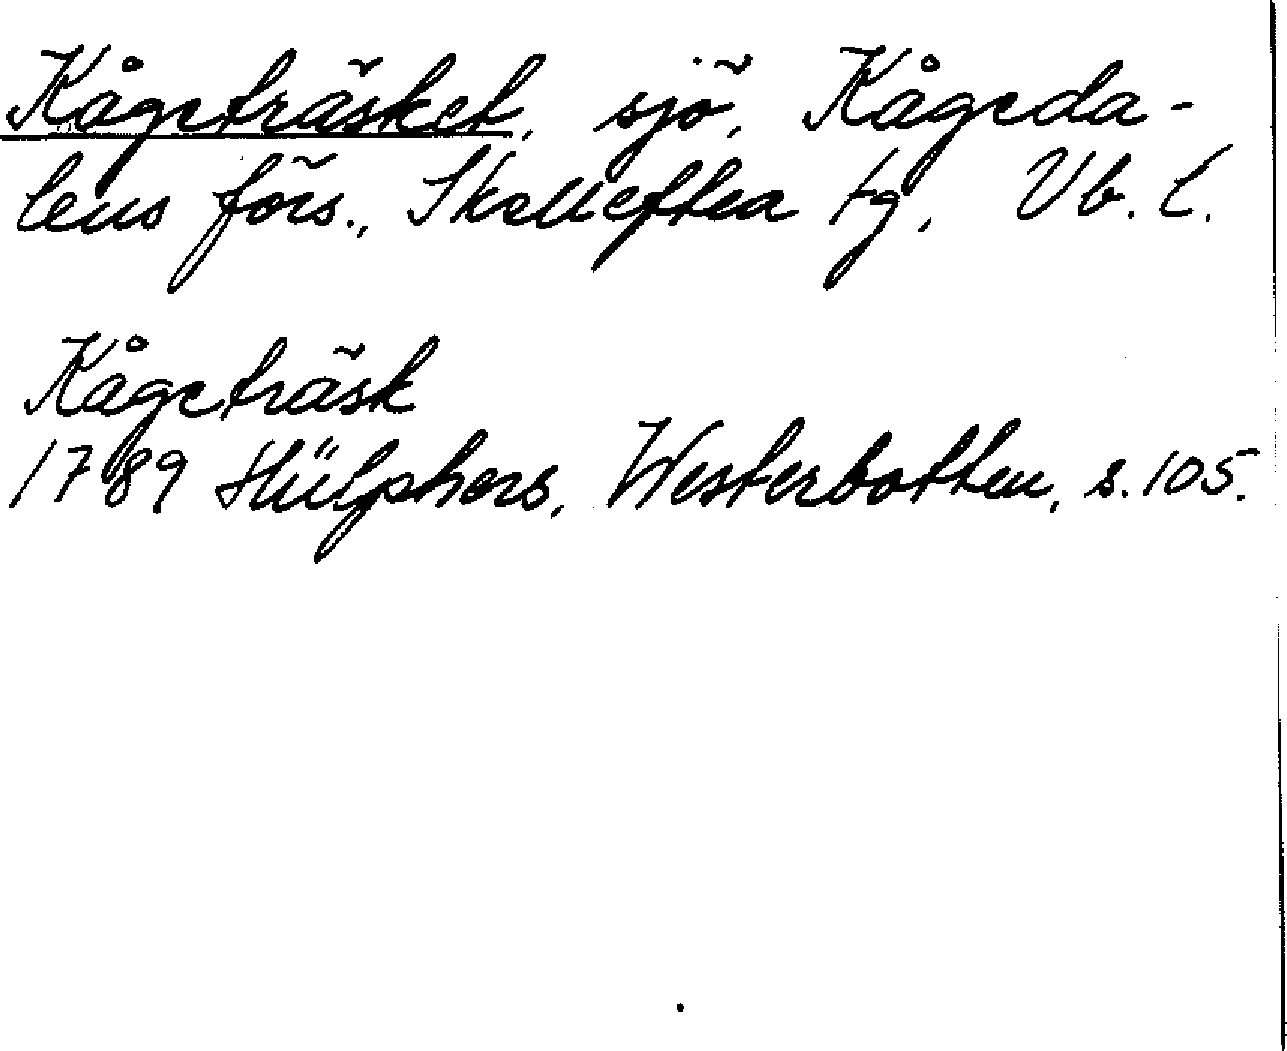 Kågeträsket, sjö, Kågeda-
lens förs., Skellefteå tg, Vb. l.
Kågeträsk
1789 Hülphers, Westerbotten, s. 105.